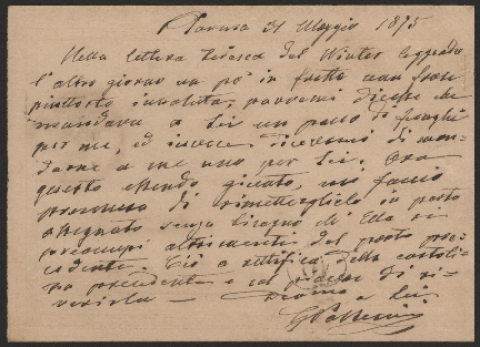 Parma 31 Maggio 1875
Nella lettera tedesca del Winter leggendo
l'altro giorno un po' in fretta una frase
piuttosto involuta, parvemi dicesse che
mandava a Lei un pacco di funghi
per me, ed invece dicevami di man-
darne a me uno per Lei. Ora
questo essendo giunto, mi faccio
premura di rimetterglielo in posta
assegnato senza bisogno di Ella si
preoccupi altrimenti del porto pre-
cedente. Ciò a rettifica della cartoli-
na precedente e col piacere di ri-
verirla — a Lei.
G Passerini